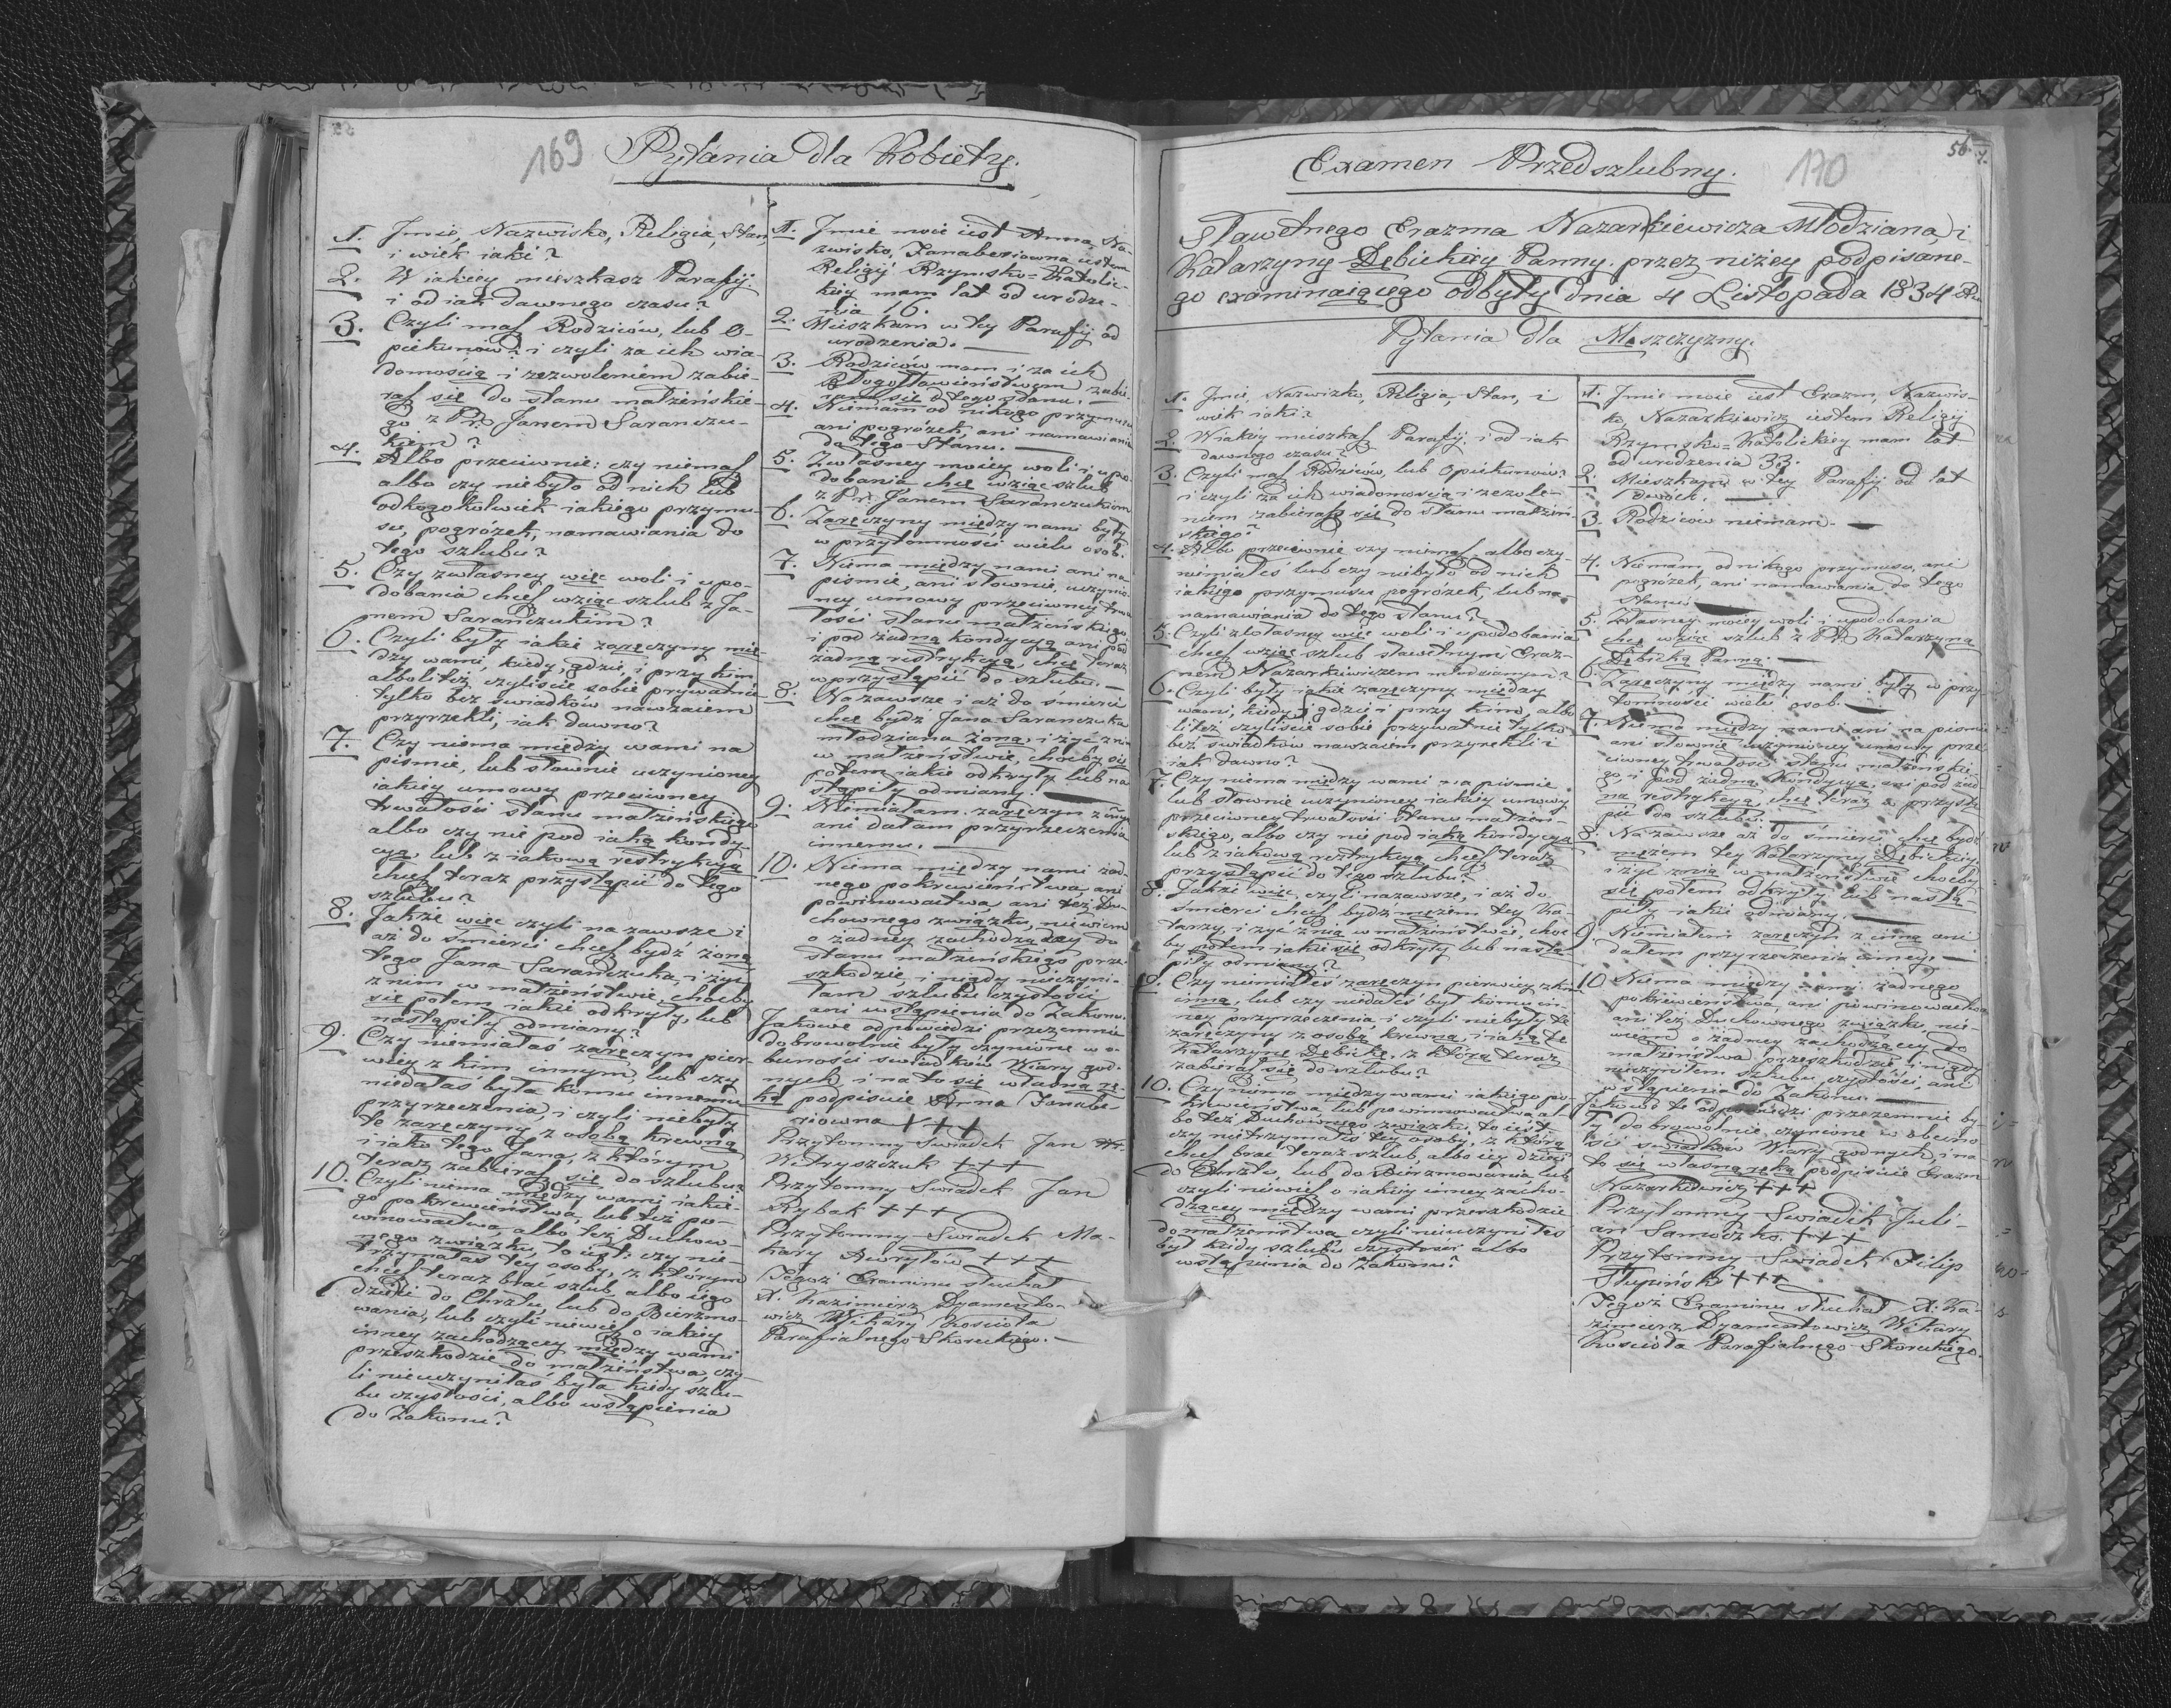 169
Pytania dla Kobiety.
1. Jmie, Nazwisko, Religia, Stan,
i wiek iaki?
2. W iakiey mieszkasz Parafij.
i od iak dawnego czasu?
3. Czyli masz Rodziców, lub O-
piekunów? i czyli za ich wia-
domością i zezwoleniem zabie-
rasz się do stanu małżeńskie-
go z Pr. Janem Sarańczu-
kiem?
4. Albo przeciwnie: czy niemasz
albo czy niebyło od nich lub
odkogokolwiek iakiego przymu-
su, pogróżek, namawiania do
tego szlubu?
5. Czy zwłasney więc woli i upo-
dobania chcesz wziąc szlub z Ja-
nem Sarańczukim?
6. Czyli były iakie zaręczyny mię-
dzy wami, kiedy, gdzie, i przy kim
albo liteż czyliście sobie prywatnie
tylko bez swiadków nawzaiem
przyrzekli, iak dawno?
7. Czy niema między wami na
piśmie, lub słownie uczynioney
iakiey umowy przeciwney
trwałości stanu małżeńskiego
albo czy nie pod iaką kondy-
cyą, lub z iakową restrykcyą
chcesz teraz przystąpić do tego
szlubu?
8. Jakże więc czyli nazawsze i
aż do śmierci chcesz bydź żoną
tego Jana Sarańczuka, i żyć
z nim w małżeństwie, choćby
się potem iakie odkryły, lub
nastąpiły odmiany?
9. Czy niemiałaś zaręczyn pier-
wiey z kim innym, lub czy
niedałaś była komu innemu
przyrzeczenia, i czyli niebyły
te zaręczyny z osobą krewną
i iako tego Jana, z którym
teraz zabierasz się do szlubu?
10. Czyli niema między wami iakie-
go pokrewieństwa, lub też po-
winowactwa, albo też Duchow-
nego związku, to iest: czy nie-
trzymałaś tey osoby, z którym
chcesz teraz brać szlub, albo iego
dzieci do Chrztu, lub do Bierzmo-
wania, lub czyli niewiesz o iakiey
inney zachodzącey między wami
przeszkodzie do małżeństwa, czy-
li nieuczyniłaś była kiedy szlu-
bu czystości, albo wstąpienia
do Zakonu?
1. Jmie moie iest Anna, Na-
zwisko, Janaberiowna iestem
Religij Rzymsko-Katolic-
kiey mam lat od urodze-
nia 16.
2. Mieszkam w tey Parafij od
urodzenia.
3. Rodziców mam i za ich
Błogosławieństwem zabie-
ram się d tego stanu.
4. Niemam od nikogo przymusu
ani pogróżek, ani namawiania
do tego Stanu.
5. Zwłasney moiey woli i upo-
dobania chcę wziąc szlub
z Pr. Janem Sarańczukiem
6. Zaręczyny między nami były
w przytomności wielu osob.
7. Niema między nami ani na
piśmie, ani słownie, uczynio-
ney umowy przeciwney trwa-
łości stanu małżeńskiego,
i pod żadną kondycyą ani pod
żadną restrykcyą, chcę teraz
wprzystąpić do szlubu.
8. Nazawsze i aż do śmierci
chcę bydź Jana Saranczuka
młodziana żoną, i żyć z nim
w małżeństwie, choćby się
potem iakie odkryły lub na-
stąpiły odmiany.
9. Niemiałam zaręczyn z innym
ani dałam przyrzeczenia
innemu.
10. Niema między nami żad-
nego pokrewieństwa, ani
powinowactwa ani też du-
chownego związku, niewiem
o żadney zachodzącey do
stanu małżeńskiego prze-
szkodzie, i nigdy nieczyni-
łam szlubu czystości
ani wstąpienia do Zakonu.
Jakowe odpowiedzi przezemnie
dobrowolnie były czynione w o-
bunosci swiadków Wiary god-
nych, i na to się własną rę-
ką podpisuie Anna Janabe-
riowna +++
Przytomny Swiadek Jan
Witryszczuk +++
Przytomny Swiadek Jan
Rybak +++
Przytomny Swiadek Ma-
kary Awrylów +++
Tegoż Examinu słuchał
X. Kazimierz Dyamento-
wicz Wikary Kościoła
Parafialnego Skoreckiego.
56
170
Examen Przedszlubny.
Sławetnego Erazma Nazarkiewicza Młodziana, i
Katarzyny Dębickiey Panny. przez niżey podpisane-
go examinaiącego odbyty dnia 4 Listopada 1834 Ru
Pytania dla Męszczyzny.
1. Jmie, Nazwizko, Religia, Stan, i
wiek iaki?
2. W iakiey mieszkasz Parafij, i od iak
dawnego czasu?
3. Czyli masz Rodziców, lub Opiekunów?
i czyli za ich wiadomością i zezwole-
niem zabierasz się do stanu małżeń-
skiego?
4. Albo przeciwnie czy niemasz, albo czy-
niemiałeś lub czy niebyło od nich
iakiego przymusu pogróżek, lub na-
namawiania do tego stanu?
5. Czyli zwłasney więc woli i upodobania
chcesz wziąc szlub sławetnym Eraz-
mem Nazarkiewiczem młodzianym?
6. Czyli były iakie zaręczyny między
wami, kiedy, gdzie i przy kim, albo
liteż czyliście sobie prywatnie tylko
bez swiadków nawzaiem przyrzekli i
iak dawno?
7. Czy niema między wami na piśmie
lub słownie uczynioney iakiey umowy
przeciwney trwałości stanu małżeń-
skiego, albo czy nie pod iaką kondycyą
lub z iakową restrykcyą chcesz teraz
przystąpić do tego szlubu?
8. Jakże więc, czyli nazawsze, i aż do
śmierci chcesz bydź mężem tey Ka-
tarzy, i żyć z nią w małżeństwie, choć
by potem iakie się odkryły lub nastą-
piły odmiany?
9. Czy niemiałeś zaręczyn pierwiey z kim
inną, lub czy niedałeś był komu in-
ney przyrzeczenia, i czyli niebyły te
zaręczyny z osobą krewną, i iaką te
Katarzynę Dębicką, z którą teraz
zabierasz się do szlubu?
10. Czy niema między wami iakiego po-
krewieństwa, lub powinnowactwa al-
bo też Duchownego związku, to iest
czy nietrzymałeś tey osoby, z którą
chcesz brać teraz szlub, albo iey dzieci
do Chrztu, lub do Bierzmowania, lub
czyli niewiesz o iakiey inney zacho-
dzącey między wami przeszkodzie
do małżeństwa, czyli nieuczyniłeś
był kiedy szlubu czystości albo
wstąpienia do Zakonu?
1. Jmie moie iest Erazm, Nazwis-
ko, Nazarkiewicz iestem Religij
Rzymsko-Katolickiey mam lat
od urodzenia 33.
2. Mieszkam w tey Parafij od lat
dwóch.
3. Rodziców niemam.
4. Niemam od nikogo przymusu, ani
pogróżek, ani namawiania do tego
Stanu.
5. Własney moiey woli i upodobania
chcę wziąc szlub z Pr. Katarzyną
Dębicką Panną.
6. Zaręczyny między nami były w przy-
tomności wielu osob.
7. Niema między nami ani na piśmie
ani słownie uczynioney umowy prze-
ciwney trwałości stanu małżeńskie-
go, i pod żadną kondycyą, ani pod żad-
ną restrykcyą, chcę teraz przystą-
pić do szlubu.
8. Na zawsze aż do śmierci chcę bydź
mężem tey Katarzyny Dębickiey,
i żyć z nią w małżeństwie choćby
się potem odkryły lub nastą-
piły iakie odmiany.
9. Niemiałem zaręczyn z inną ani
dałem przyrzeczenia inney.
10 Niema między nami żadnego
pokrewieństwa, ani powinowactwa
ani też Duchownego związku, nie-
wiem o żadney zachodzącey do
małżeństwa przeszkodzie, i nigdy
nieczyniłem szlubu czystości, ani
wstąpienia do Zakonu.
Jakowe te odpowiedzi przezemnie by-
ły dobrowolnie czynione w obecno-
ści swiadków Wiary godnych, i na-
to się własną ręką podpisuie Erazm
Nazarkiewicz +++
Przytomny Swiadek Juli-
an Samoczko +++
Przytomny Swiadek Filip
Słupiński +++
Tegoż Examinu słuchał X. Ka-
zimierz Dyamentowicz Wikary
Kościoła Parafialnego Skoreckiego.